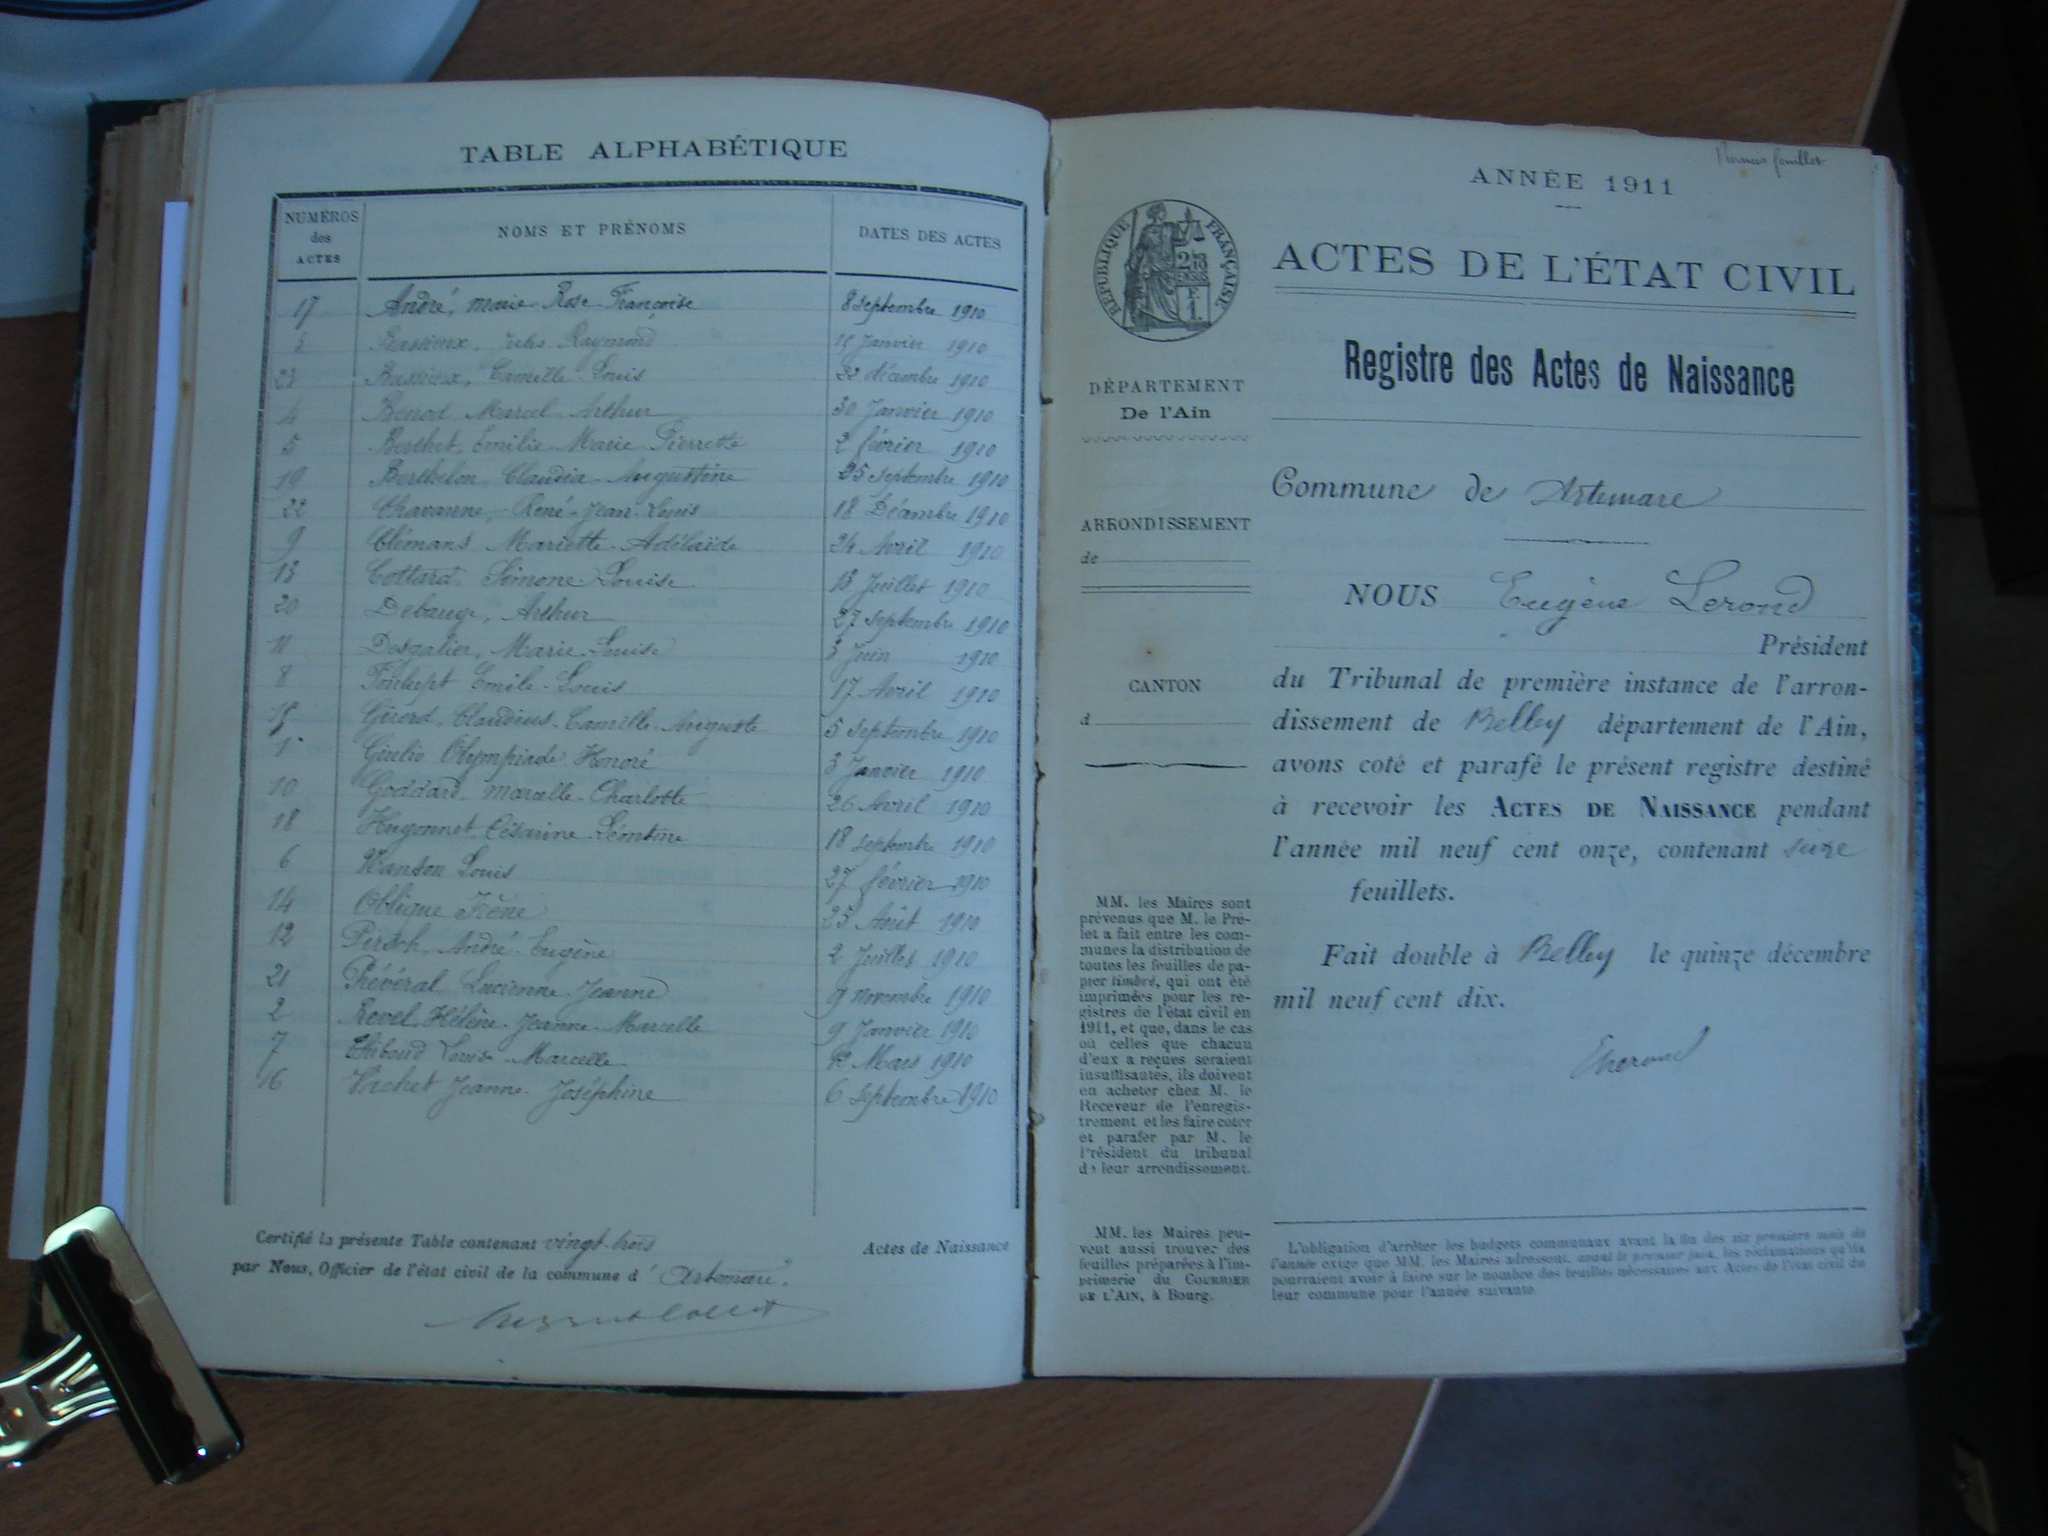 TABLE ALPHABÉTIQUE
NUMÉROS des ACTES
NOMS ET PRÉNOMS
DATES DES ACTES
17 André, Marie-Rose-Françoise 8 septembre 1910
Jules Raymond Janvier 1910
23 Bussieux, Camille-Louis 22 décembre 1910
4 Benod Marcel Arthur 30 Janvier 1910
5 Berthet Emilie-Marie-Pierrette 2 février 1910
19 Berthelon, Claudia-Augustine 25 septembre 1910
22 Chavanne, René-Jean-Louis 18 Décembre 1910
9 Clémans Mariette-Adélaïde 24 Avril 1910
13 Cottard Simone Louise 13 Juillet 1910
20 Debauge, Arthur 27 septembre 1910
11 Desgalier, Marie-Louise 3 Juin 1910
8 Emile-Louis 17 Avril 1910
15 Girord, Claudius-Camille-Auguste 5 septembre 1910
1 Giulio Olympiade Honoré 3 Janvier 1910
10 Goddard Marcelle-Charlotte 26 Avril 1910
18 Hugonnet, Césarine-Léontine 18 septembre 1910
6 Manson Louis 27 février 1910
14 Oblique Irène 25 Août 1910
12 Pirsch, André-Eugène 2 Juillet 1910
21 Prévéral Lucienne-Jeanne 9 novembre 1910
2 Revel, Hélène-Jeanne-Marcelle 9 Janvier 1910
7 Thibaud Louis-Marcelle Mars 1910
16 Vichet Jeanne-Joséphine 6 septembre 1910
Certifié la présente Table contenant vingt-trois Actes de Naissance
par Nous, Officier de l'état civil de la commune d' Artemare.
feuillet
ANNÉE 1911
RÉPUBLIQUE FRANÇAISE
ACTES DE L'ÉTAT CIVIL
Registre des Actes de Naissance
DÉPARTEMENT
De l'Ain
ARRONDISSEMENT
de
CANTON
d
Commune de Artemare
NOUS Eugène Lerond
Président
du Tribunal de première instance de l'arron-
dissement de Belley département de l'Ain,
avons coté et parafé le présent registre destiné
à recevoir les ACTES DE NAISSANCE pendant
l'année mil neuf cent onze, contenant seize
feuillets.
Fait double à Belley le quinze décembre
mil neuf cent dix.
MM. les Maires sont
prévenus que M. le Pré-
fet a fait entre les com-
munes la distribution de
toutes les feuilles de pa-
pier timbré, qui ont été
imprimées pour les re-
gistres de l'état civil en
1911, et que, dans le cas
où celles que chacun
d'eux a reçues seraient
insuffisantes, ils doivent
en acheter chez M. le
Receveur de l'enregis-
trement et les faire coter
et parafer par M. le
Président du tribunal
de leur arrondissement.
MM. les Maires peu-
vent aussi trouver des
feuilles préparées à l'im-
primerie du COURRIER
DE L'AIN, à Bourg.
L'obligation d'arrêter les budgets communaux avant la fin des six premiers mois de
l'année exige que MM. les Maires adressent, avant le premier juin, les réclamations qu'ils
pourraient avoir à faire sur le nombre des feuilles nécessaires aux Actes de l'état civil de
leur commune pour l'année suivante.